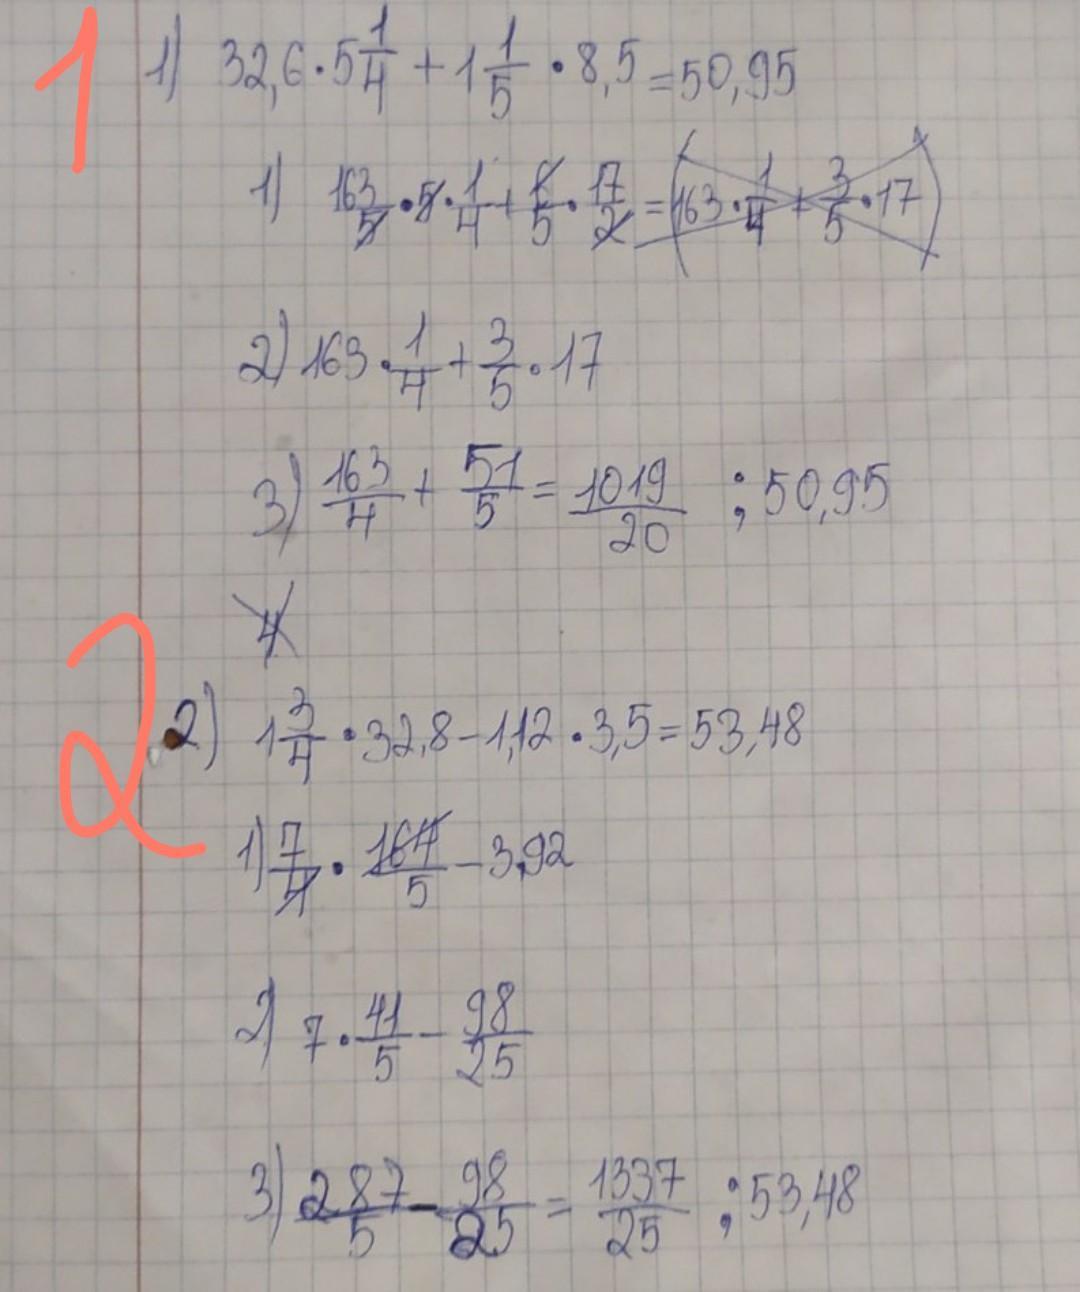 1
1) 32,6 · 5 1/4 + 1 1/5 · 8,5 = 50,95
1) 163/5 · 5 · 1/4 + 6/5 · 17/2 = (163 · 1/4 + 3/5 · 17)
2) 163 · 1/4 + 3/5 · 17
3) 163/4 + 51/5 = 1019/20 ; 50,95
4
2
2) 1 3/4 · 32,8 - 1,12 · 3,5 = 53,48
1) 7/4 · 164/5 - 3,92
2) 7 · 41/5 - 98/25
3) 287/5 - 98/25 = 1337/25 ; 53,48